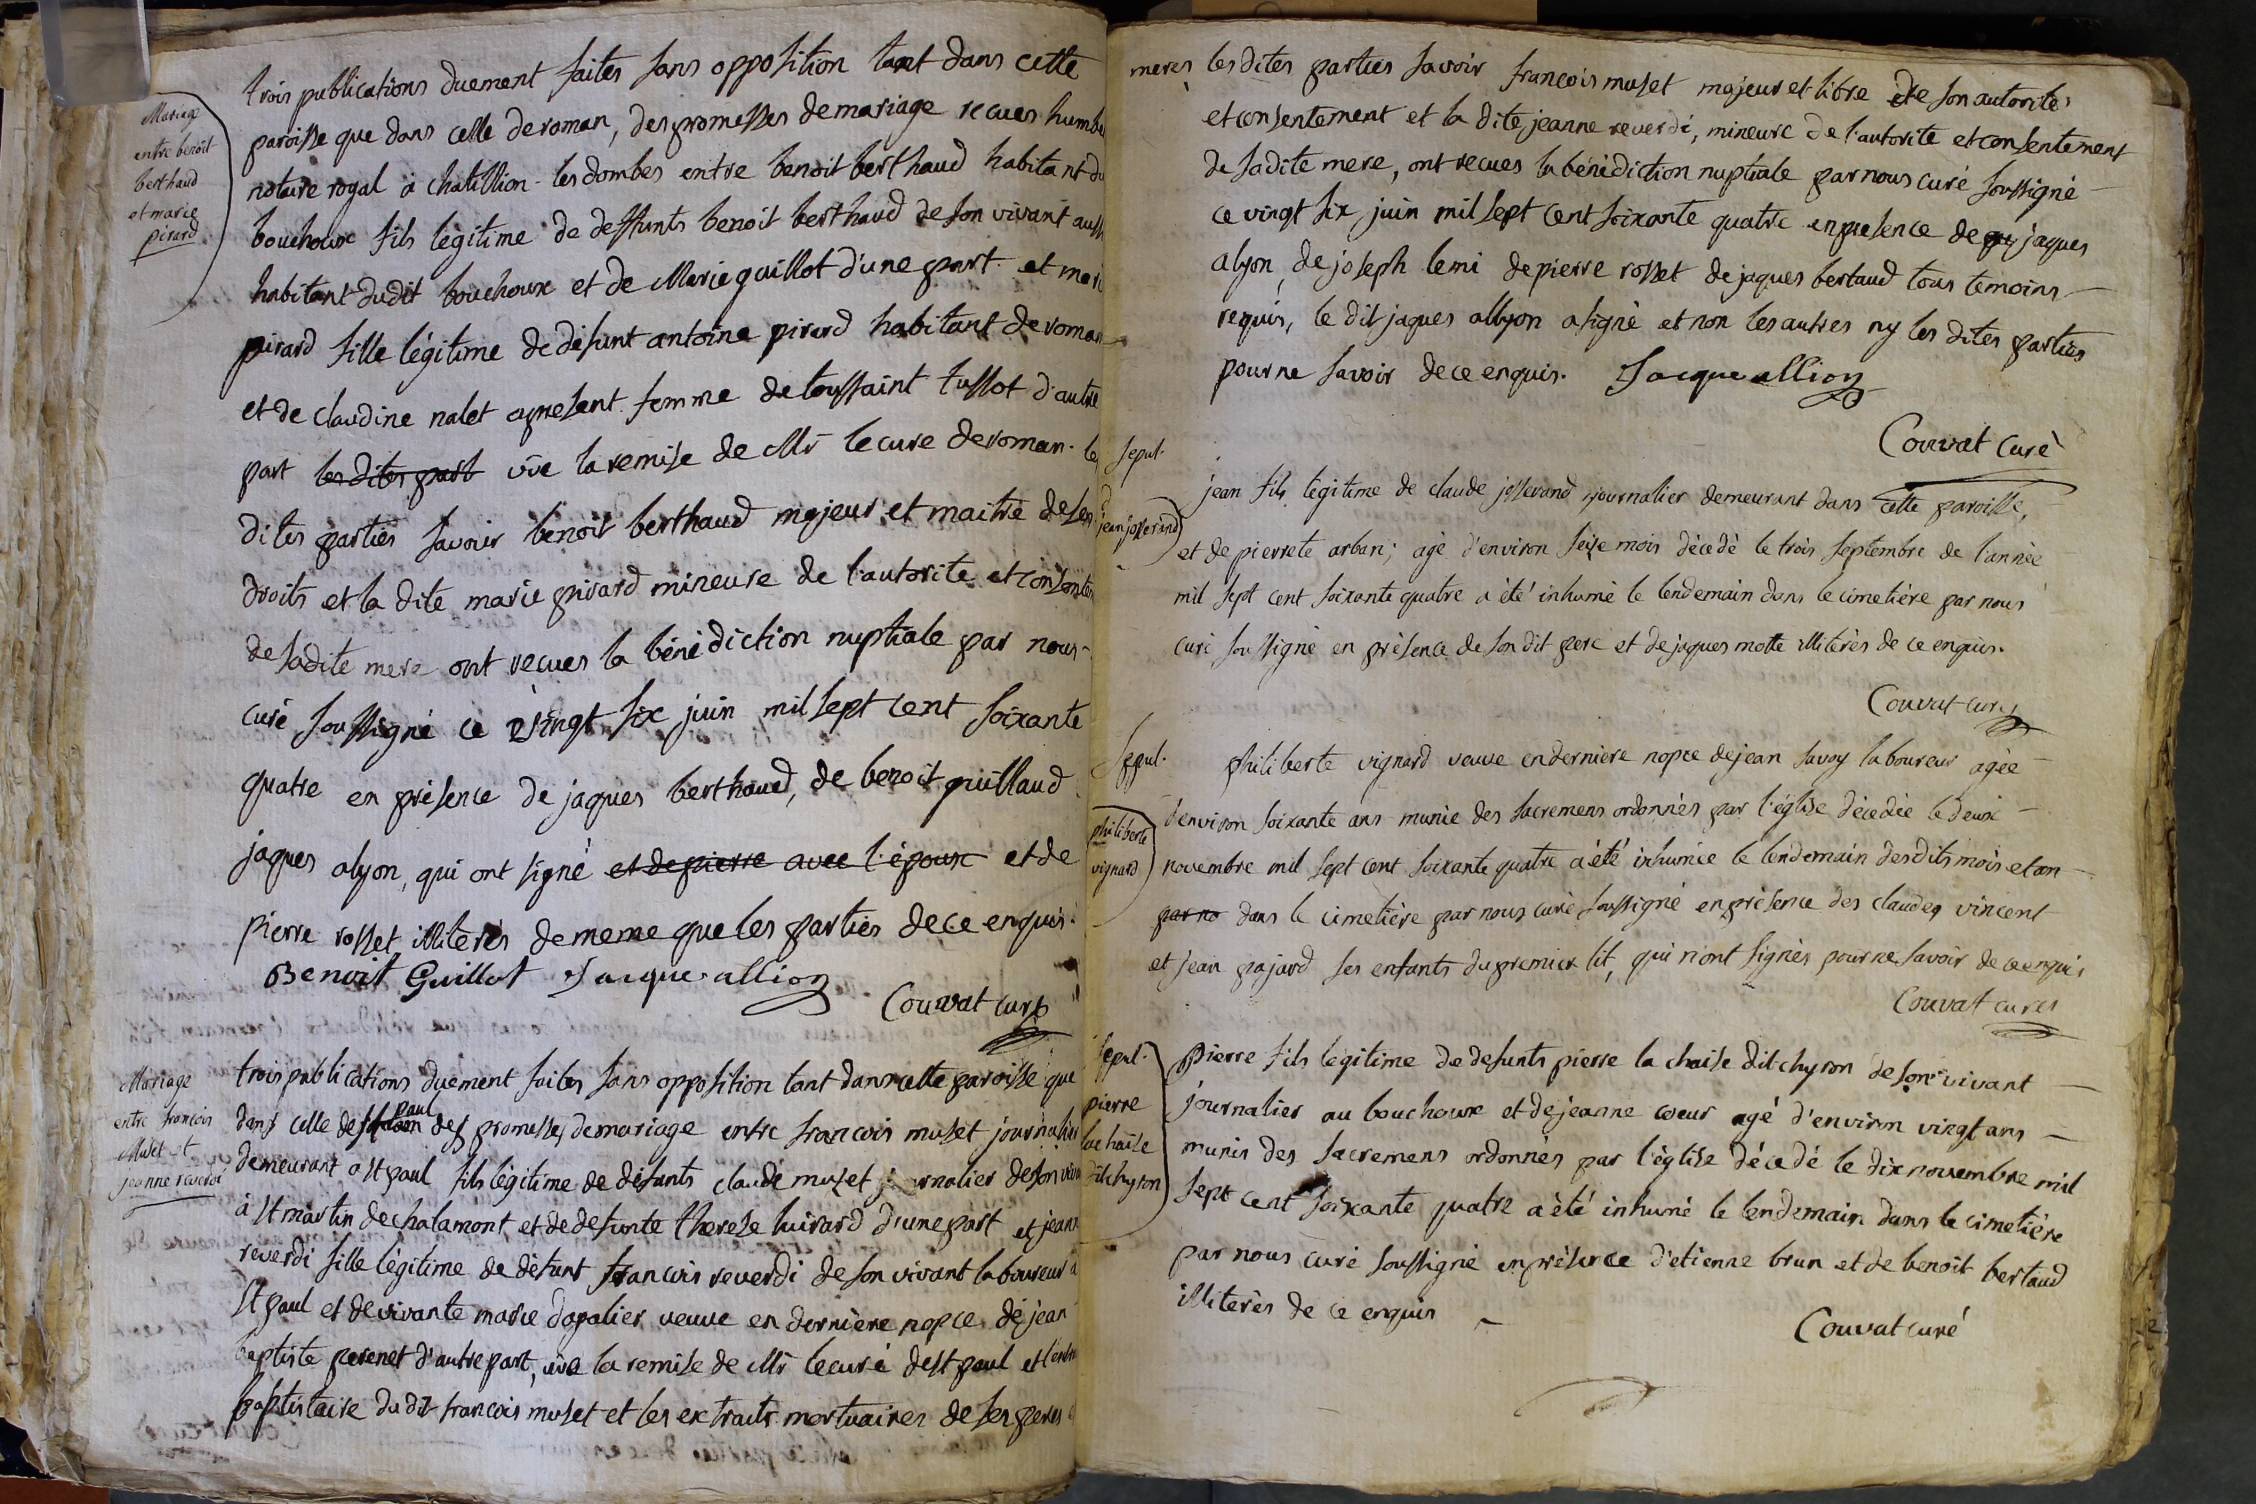 Mariage
entre benoît
berthaud
et marie
pirard
trois publications duement faites sans opposition tant dans cette
paroisse que dans celle de roman, des promesses de mariage recues humbe
notaire royal à chatillion-les dombes entre benoit berthaud habitant du
bouchoux fils légitime de deffunts benoit berthaud de son vivant aussi
habitant dudit bouchoux et de Marie guillot d'une part et mari
pirard fille légitime de défunt antoine pirard habitant de roman
et de claudine nalet apresent femme de toussaint tussot d'autre
part les dites part vüe la remise de Mr le cure de roman. les
dites parties savoir benoit berthaud majeur et maitre de ses
droits et la dite marie pirard mineure de l'autorite et consentem
de sadite mere ont recues la bénédiction nuptiale par nous-
curé soussigné ce vingt six juin mil sept cent soixante
quatre en présence de jaques berthaud, de benoit guillaud
jaques alyon, qui ont signé et de pierre avec l'époux et de
pierre rosset illiterés de meme que les parties de ce enquis.
Benoit Guillot Jacque allion
Couvat curé
Mariage
entre francois
Muset et
jeanne reverdi
trois publications duement faites sans opposition tant dans cette paroisse que
paul
dans celle de st des promesses de mariage entre francois muset journalier
demeurant a st paul fils légitime de défunts claude muset journalier de son viva
à st martin de chalamont et de defunte therese luirard d'une part et jeann
reverdi fille légitime de défunt francois reverdi de son vivant laboureur a
st paul et de vivante marie dapalier veuve en dernière nopce de jean
baptiste perenet d'autre part, vüe la remise de Mr le curé de st paul et l'extra
baptistaire du dit francois muset et les extraits mortuaires de ses peres e
meres les dites parties savoir francois muset majeur et libre de son autorité
et consentement et la dite jeanne reverdi, mineure de l'autorite et consentement
de sadite mere, ont recues la bénédiction nuptiale par nous curé soussigné
ce vingt six juin mil sept cent soixante quatre en presence de jaques
alyon, de joseph lemi de pierre rosset de jaques bertaud tous temoins
requis, le dit jaques allyon a signé et non les autres ny les dites parties
pour ne savoir de ce enquis. Jacque allion
Couvat Curé
sepul.
jean josserand
jean fils légitime de claude josserand journalier demeurant dans cette paroisse,
et de pierrete arban; agé d'environ seize mois décédé le trois septembre de l'année
mil sept cent soixante quatre a été inhumé le lendemain dans le cimetière par nous
curé soussigné en présence de son dit pere et de jaques motte illiterés de ce enquis.
Couvat curé
Sepul.
philiberte
vignard
philiberte vignard veuve en derniere nopce de jean savoy laboureur agée
d'environ soixante ans munie des sacremens ordonnés par l'église décedée le deux
novembre mil sept cent soixante quatre a été inhumée le lendemain desdits mois et an
par no dans le cimetière par nous curé soussigné en présence des claude vincent
et jean pajard ses enfants du premier lit, qui n'ont signés pour ne savoir de ce enquis
Couvat curé
sepul.
pierre
lachaise
dit chyron
pierre fils légitime de defunts pierre la chaise dit chyron de son vivant
journalier au bouchoux et de jeanne coeur agé d'environ vingt ans
munis des sacremens ordonnés par l'église décedé le dix novembre mil
sept cent soixante quatre a été inhumé le lendemain dans le cimetière
par nous curé soussigné en présence d'etienne brun et de benoit bertaud
illiterés de ce enquis
Couvat curé